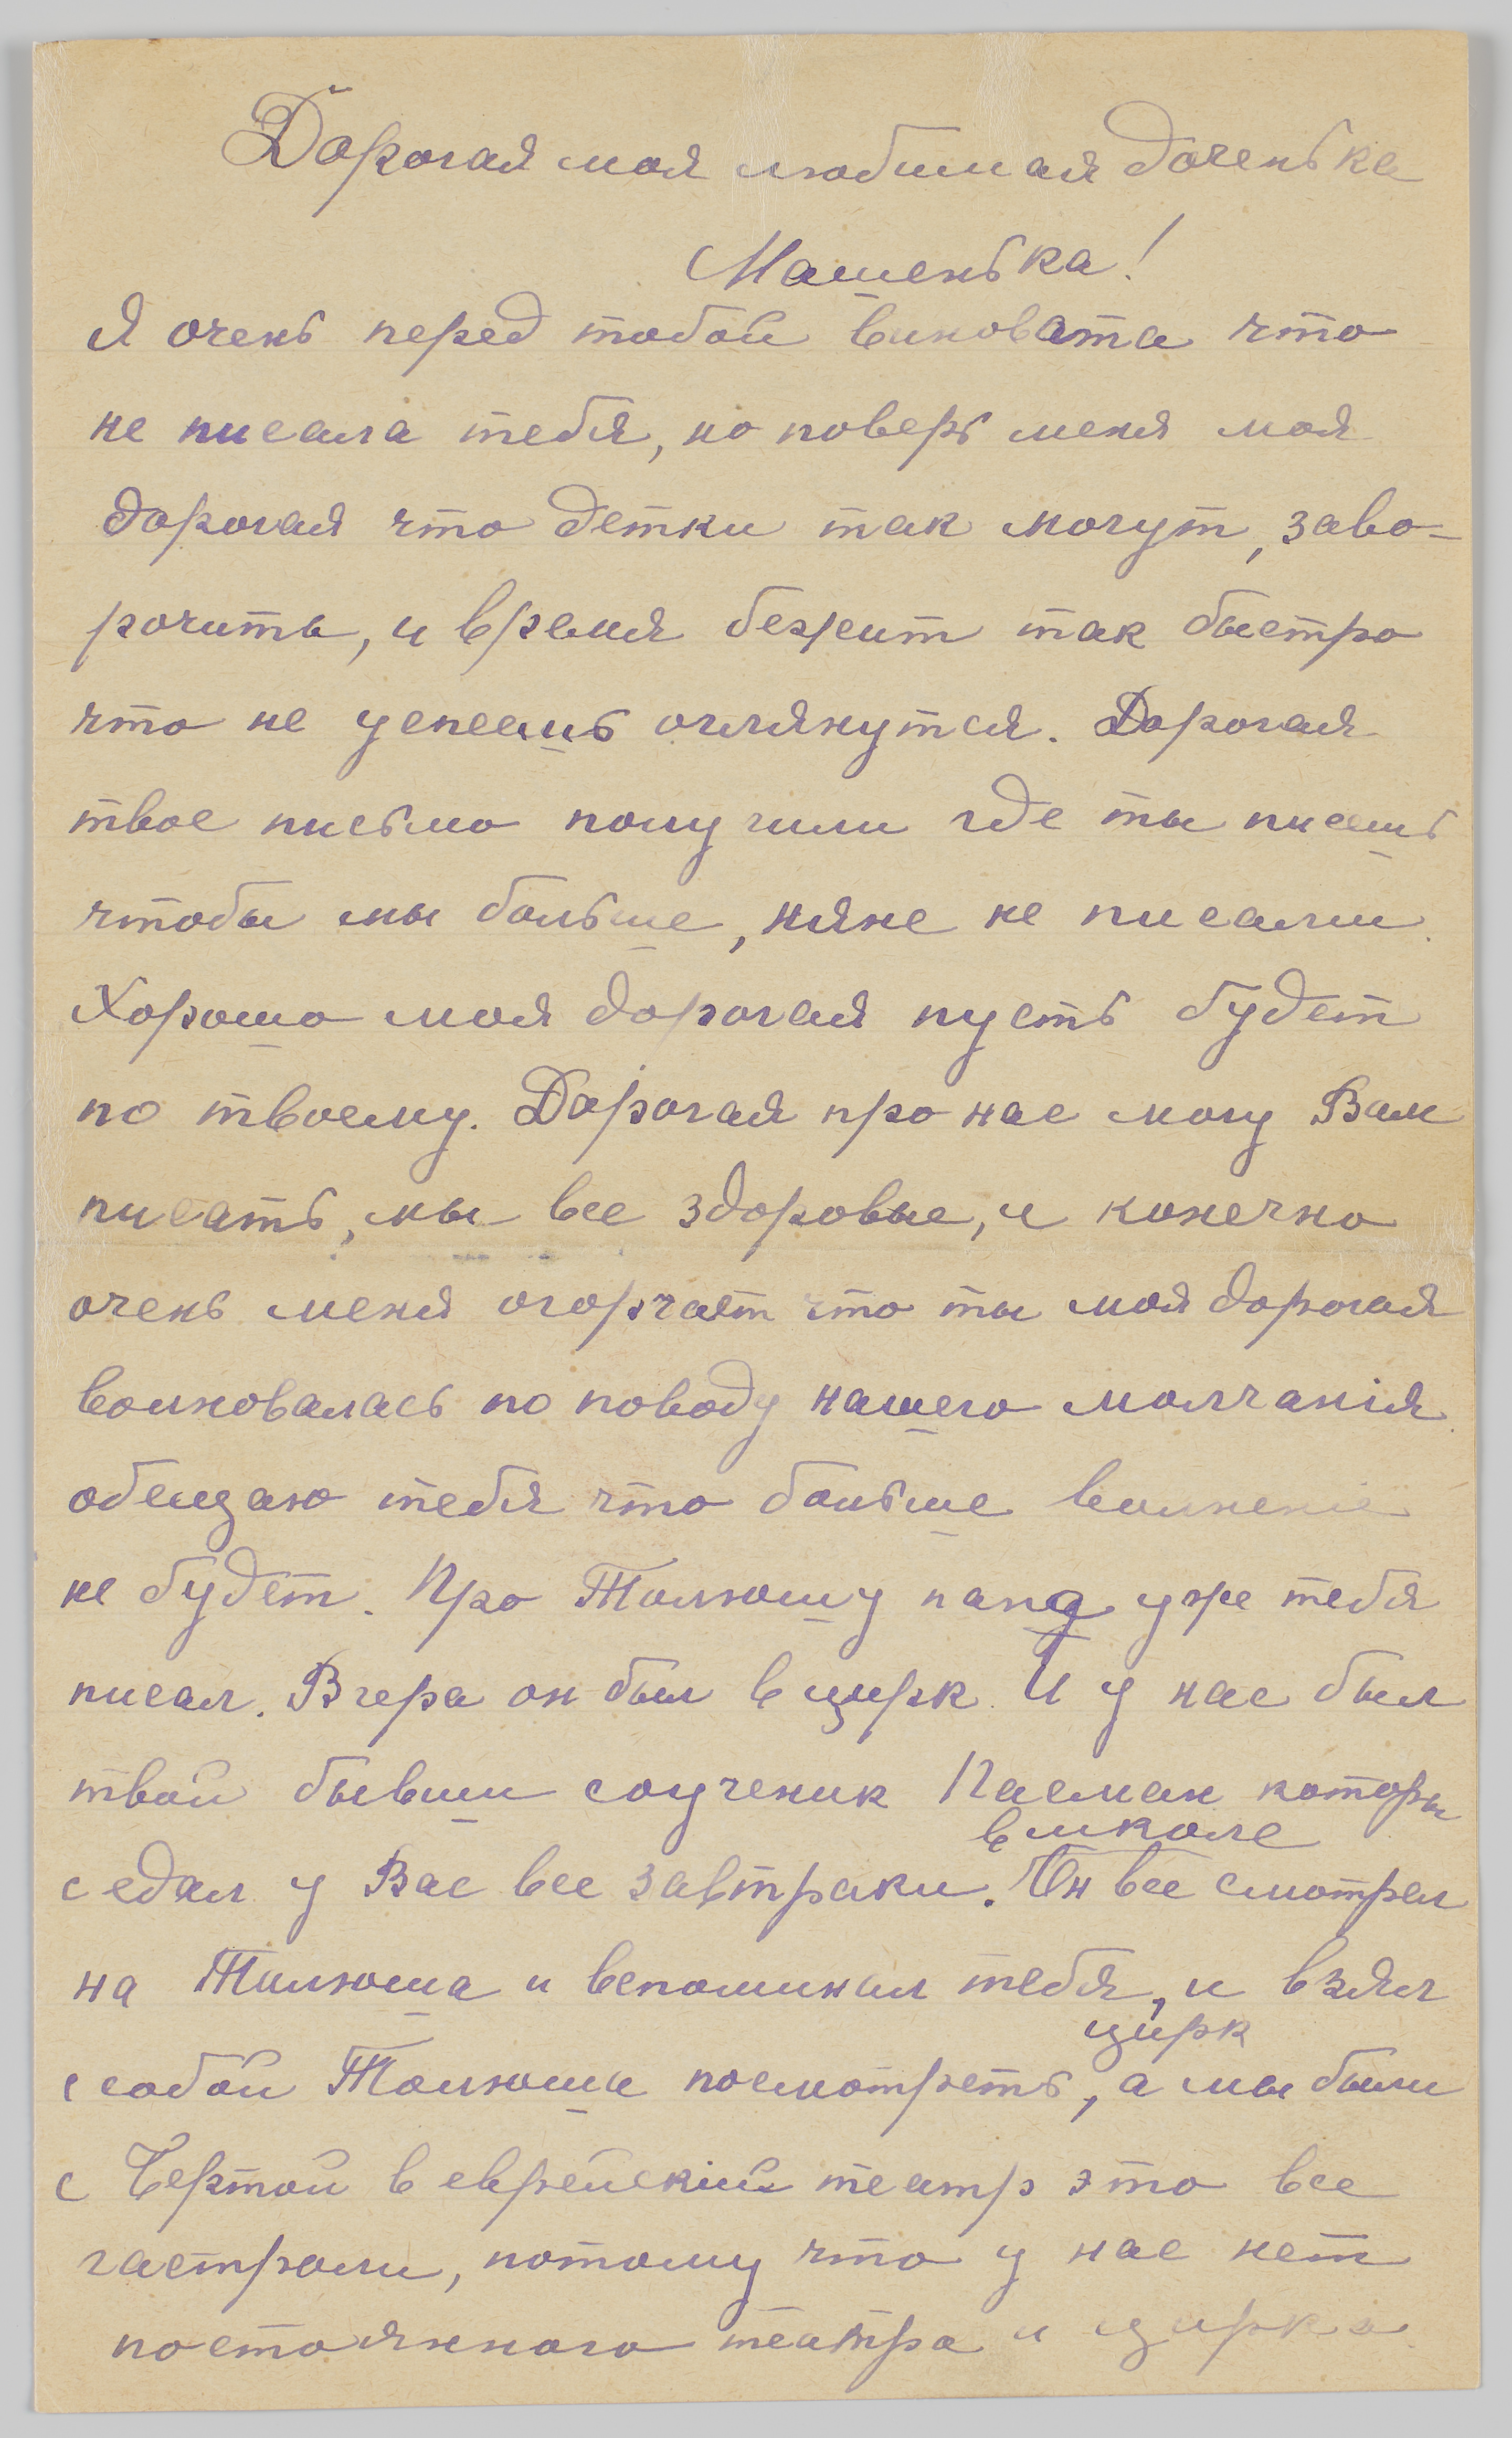 Дорогая моя любимая доченька
Машенька!
Я очень перед тобой виновата что
не писала тебя, но поверь меня моя
дорогая что детки так могут, заво-
рочить, и время бежит так быстро
что не успеешь оглянутся. Дорогая
твое письмо получили где ты писешь
чтобы мы больше, няне не писали.
Хорошо моя дорогая пусть будет
по твоему. Дорогая про нас могу Вам
писать, мы все здоровые, и конечно
очень меня огорчает что ты моя дорогая
волновалась по поводу нашего молчанія
обещаю тебя что больше волненіе
не будет. Про Толюшу папа уже тебя
писал. Вчера он был в цирк. И у нас был
твой бывши соученик Пасман которы
в школе
с едал у Вас все завтраки. Он все смотрел
на Толюша и вспоминал тебя, и взял
цирк
с собой Толюша посмотреть, а мы были
с Бертой в еврейскій театр это все
гастроли, потому что у нас нет
постоянного театра и цирка.